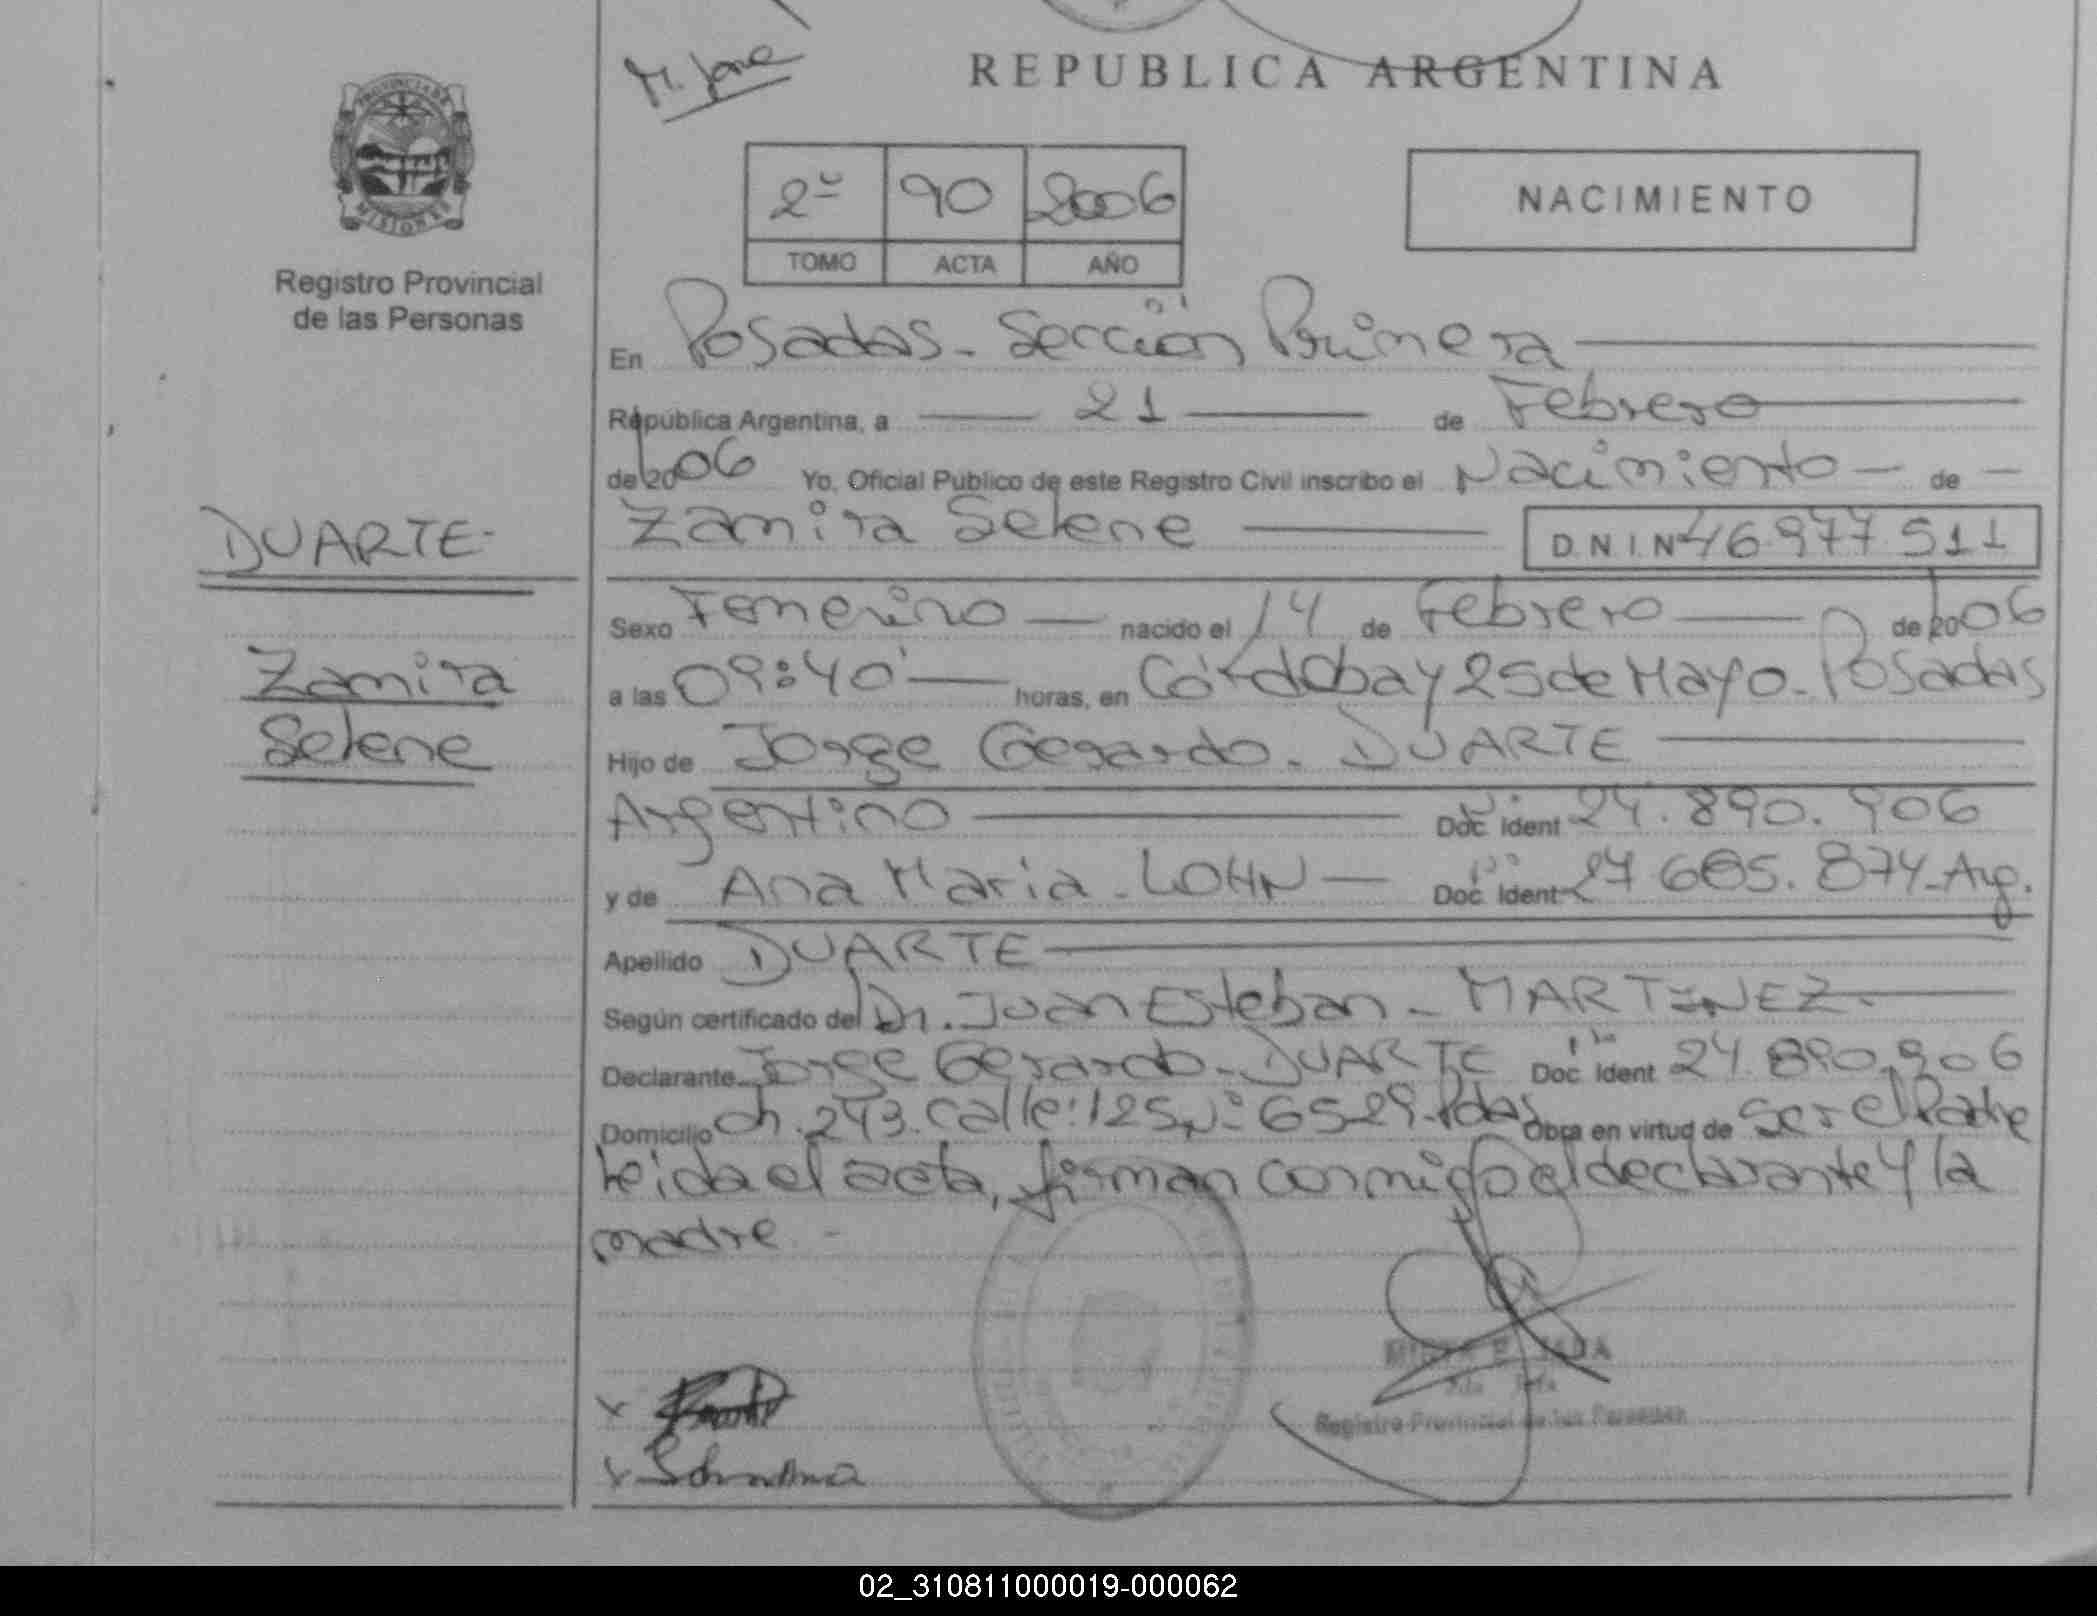 M. Jane
REPUBLICA ARGENTINA
PROVINCIA DE
MISIONES
Registro Provincial
de las Personas
2º 90 2006
TOMO ACTA AÑO
NACIMIENTO
En Posadas - Sección Primera
República Argentina, a 21 de Febrero
de 2006 Yo, Oficial Público de este Registro Civil inscribo el Nacimiento de
DUARTE-
Zamira Selene D.N.I. Nº 46.977.511
Sexo Femenino nacido el 14 de Febrero de 2006
Zamira
Selene
a las 09:40' horas, en Córdoba y 25 de Mayo - Posadas
Hijo de Jorge Gerardo - DUARTE
Argentino Doc. Ident 24.890.906
y de Ana Maria - LOHN Doc. Ident 27.685.874 - Arg.
Apellido DUARTE
Según certificado del Dr. Juan Esteban - MARTINEZ.
Declarante Jorge Gerardo - DUARTE Doc. Ident 24.890.906
Domicilio ch. 243. calle: 125 Nº 6529 - Pdas Obra en virtud de ser el Padre
Leida el acta, firman conmigo el declarante y la
madre. -
Registro Provincial de las Personas
02_310811000019-000062